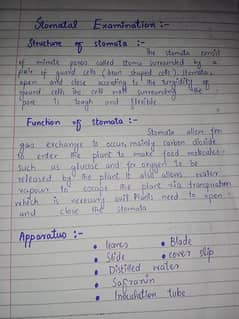 Stomatal Examination :-
Structure of stomata :-
The stomata consist
of minute pores called stoma surrounded by a
pair of guard cells (bean shaped cells). Stomata,
open and close according to the turgidity of
guard cells the cell wall surrounding the
pore is tough and flexible.
Function of stomata :-
Stomata allow for
gas exchange to occur, mainly carbon dioxide
to enter the plant to make food molecules
such as glucose and for oxygen to be
released by the plant. It also allows water
vapour to escape the plant via transpiration
which is necessary will Plants need to open
and close the stomata
Apparatus :-
• leaves • Blade
• Slide • cover slip
• Distilled water
• Safranin
• Incubation tube